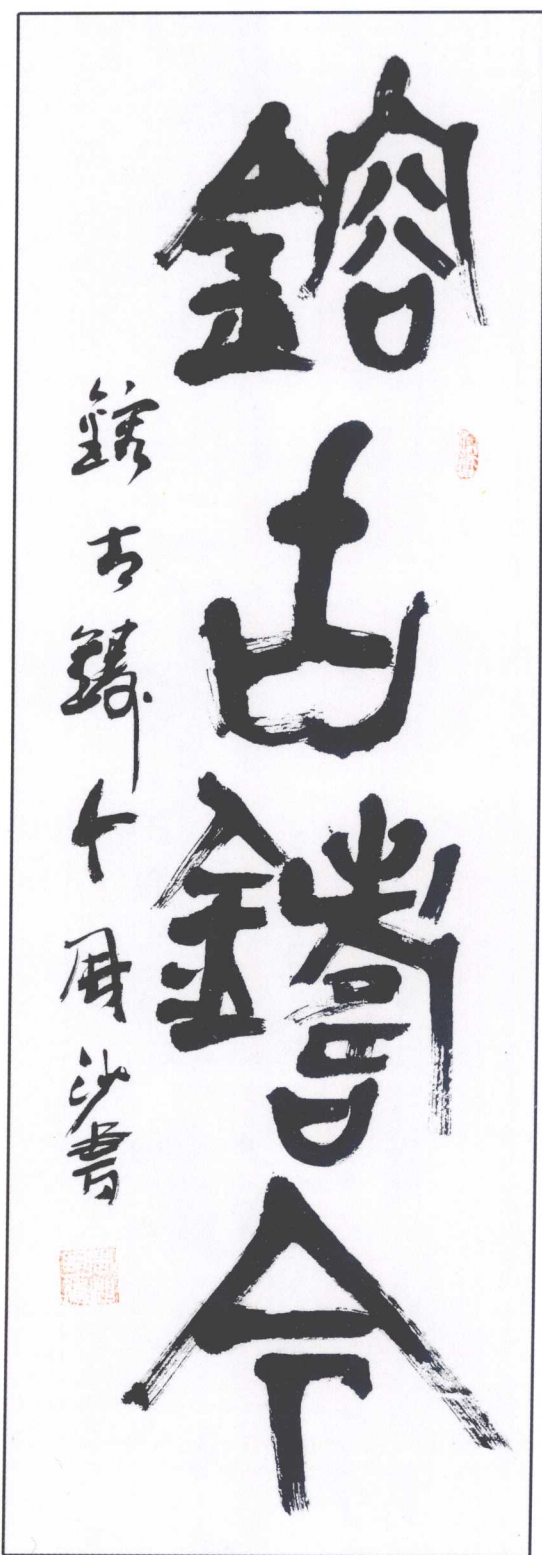 鎔古鑄今
鎔古鑄今 周沙書